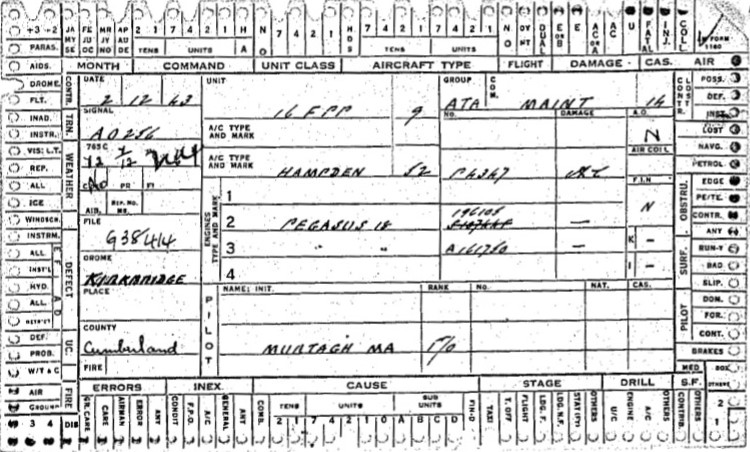 +3 -2 JA FE MR AP 2 1 7 4 2 1 H N 7 4 2 1 7 4 2 1 N DUAL U FATAL INJ. COLL. FORM 1180
PARAS. SE OC NO DE TENS UNITS A O TENS UNITS
AIDS. MONTH COMMAND UNIT CLASS AIRCRAFT TYPE FLIGHT DAMAGE CAS. AIR
DROME. CONTR. DATE UNIT GROUP COM. CONTR. POSS.
FLT. 2 12 43 16 FPP 9 ATA MAINT 14 DEF.
INAD. SIGNAL A/C TYPE AND MARK No. DAMAGE A.O. INST.
INSTR. TRN. A0256 N LOST
VIS: L.T. 765 C AIR COLL NAVG.
REP. WEATHER A/C TYPE AND MARK HAMPDEN 52 P4347 PETROL
ALL PR FT F.I.H EDGE
ICE AIB. REP. NO. ENGINES TYPE AND MARK 1 N OBSTRU. PE/TE.
WINDSCR. FILE 2 PEGASUS 18 196108 — CONTR.
INSTRM. G38414 ANY
ALL DROME 3 " " A161750 — K — SURF. RUN-Y
INST'L DEFECT KIRKBRIDGE 4 I — BAD
HYD. PLACE PILOT NAME; INIT. RANK No. NAT. CAS. SLIP.
ALL PILOT DOM.
DISTRICT FOR.
DEF. COUNTY CONT.
PROB. UC. Cumberland MURTAGH MA F/O BRAKES
W/T & C FIRE MED
AIR FIRE ERRORS INEX. CAUSE STAGE DRILL S.F. OTHERS
GROUND GR. CARE CARE AIRMAN ERROR ANY CONDIT F.P.O. A/C GENERAL ANY COMB. TENS UNITS SUB UNITS FIN-O TAXI T. OFF FLIGHT LDG. F. LDG. N.F. OTHERS U/C ENGINE A/C OTHERS CONTRIB. 2
3 4 DIS 2 1 7 4 2 1 0 A B C D 1